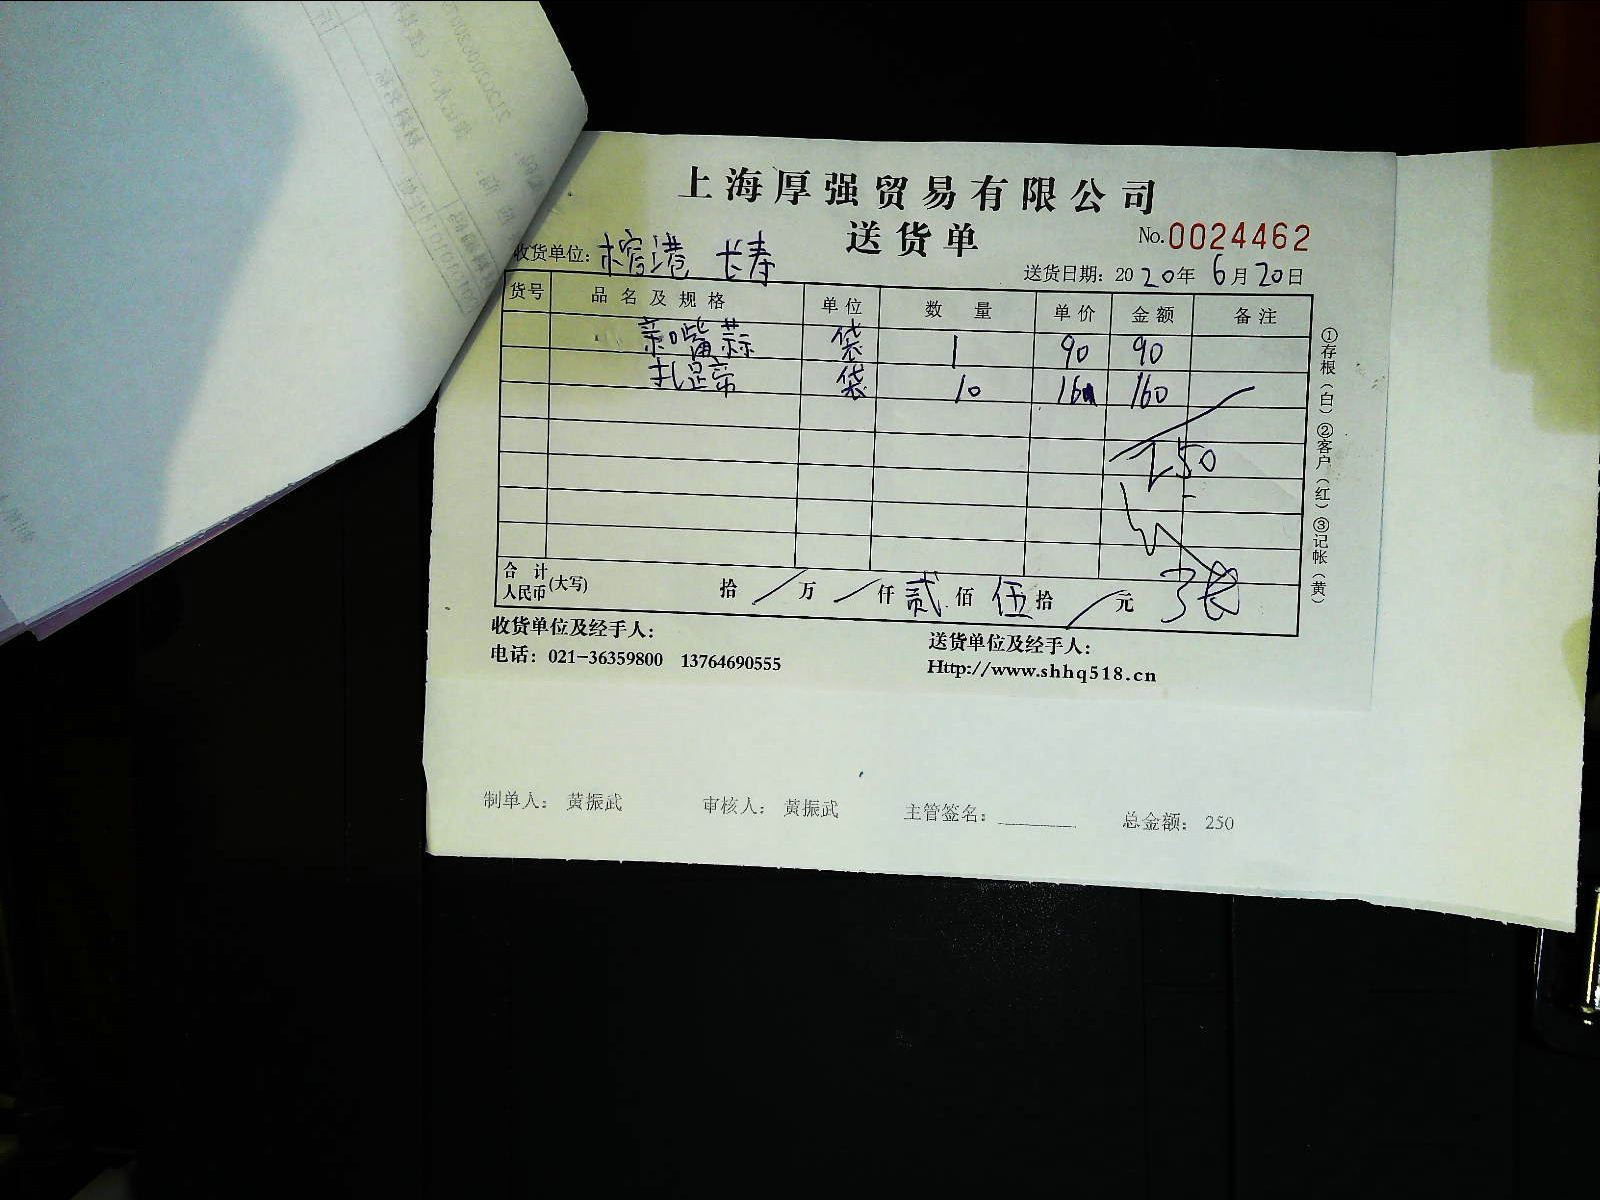 上海厚强贸易有限公司
送货单
No.0024462
收货单位：榕港 长寿
送货日期：2020年6月20日
货号 品名及规格 单位 数量 单价 金额 备注
袋 1 90 90
扎 袋 10 16 160
250
合计人民币(大写) 拾/万/仟贰佰伍拾/元
张
收货单位及经手人：
送货单位及经手人：
电话：021-36359800 13764690555
Http://www.shhq518.cn
①存根（白）②客户（红）③记帐（黄）
制单人：黄振武 审核人：黄振武 主管签名：________ 总金额：250